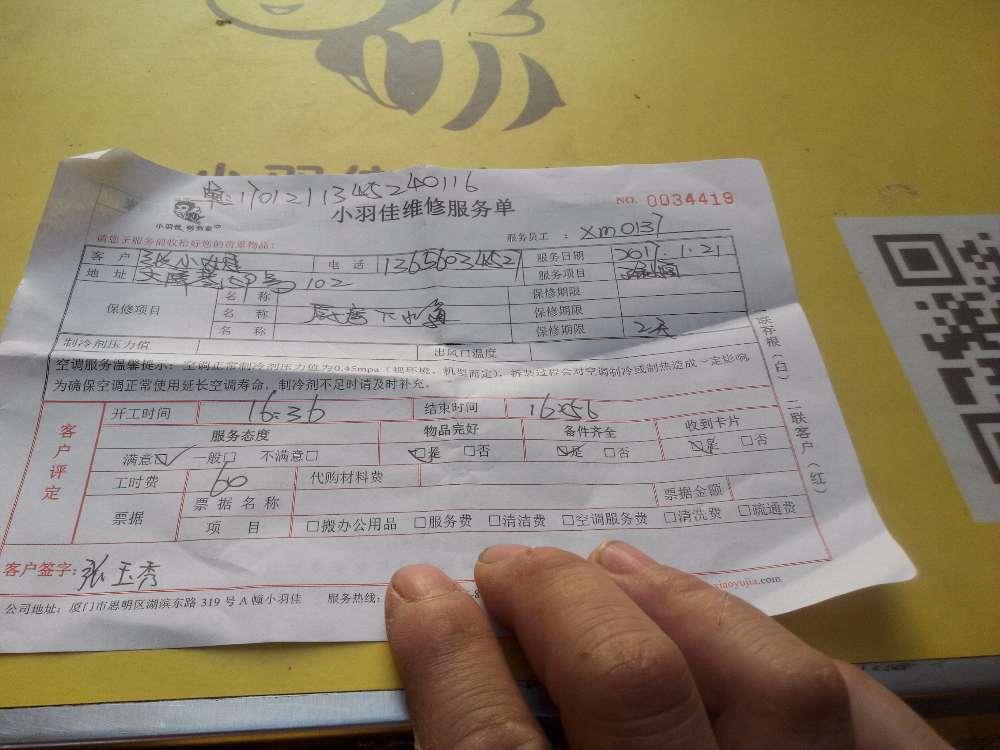 单:1701211345240116
小羽佳维修服务单
NO. 0034419
小羽佳
请您于服务前收拾好您的贵重物品:
服务员工: xm0137
客户 张小姐 电话 13656034527 服务日期 2017.1.21
地址 102 服务项目
保修项目 名称 保修期限
名称 保修期限
名称 保修期限 2天
制冷剂压力值 出风口温度
空调服务温馨提示:空调正常制冷剂压力值为0.45mpa(视环境、机型而定),拆装过程会对空调制冷或制热造成一定影响
为确保空调正常使用延长空调寿命,制冷剂不足时请及时补充。
客户评定
开工时间 16:36 结束时间 16:56
服务态度 物品完好 备件齐全 收到卡片
满意☑ 一般□ 不满意□ ☑是 □否 ☑是 □否 ☑是 □否
工时费 60 代购材料费
票据 票据名称 票据金额
项目 □搬办公用品 □服务费 □清洁费 □空调服务费 □清洗费 □疏通费
联存根(白) 二联客户(红)
客户签字: 张玉秀
公司地址: 厦门市思明区湖滨东路 319 号 A 幢小羽佳 服务热线:
xiaoyujia.com